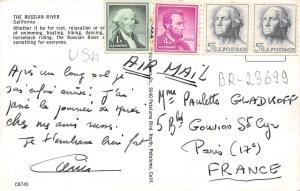 THE RUSSIAN RIVER
California
Whether it be for rest, relaxation or
of swimming, boating, hiking, dancing,
horseback riding, the Russian River
something for everyone.
USA
AIR MAIL
BR-23699
Après un long vol je
suis enfin arrivé. J'ai
passé la journée de
chez mes amis
Je t'embrasse bien fort
C8745
2040 Petaluma Blvd. North, Petaluma, Calif.
5¢ U.S. POSTAGE
5¢ U.S. POSTAGE
Mme Paulette GLADKOFF
5 Bd Gouvion St Cyr
Paris (17e)
FRANCE